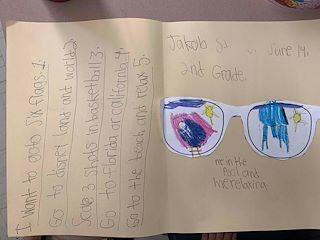 I want to goto Six flags. 1.
Go to disney land and world 2.
Score 3 shots in basketball 3.
Go to florida or california 4.
Go to the beach and relax 5.
Jakob S June 14,
2nd Grade.
me in the
Pool and
me relaxing